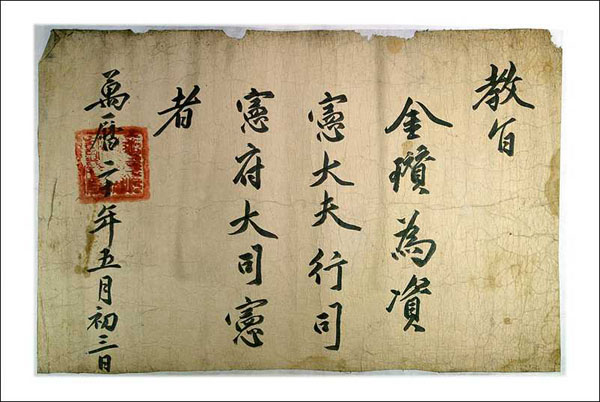 教旨
金瓚為資
憲大夫行司
憲府大司憲
者
萬曆二十年五月初三日